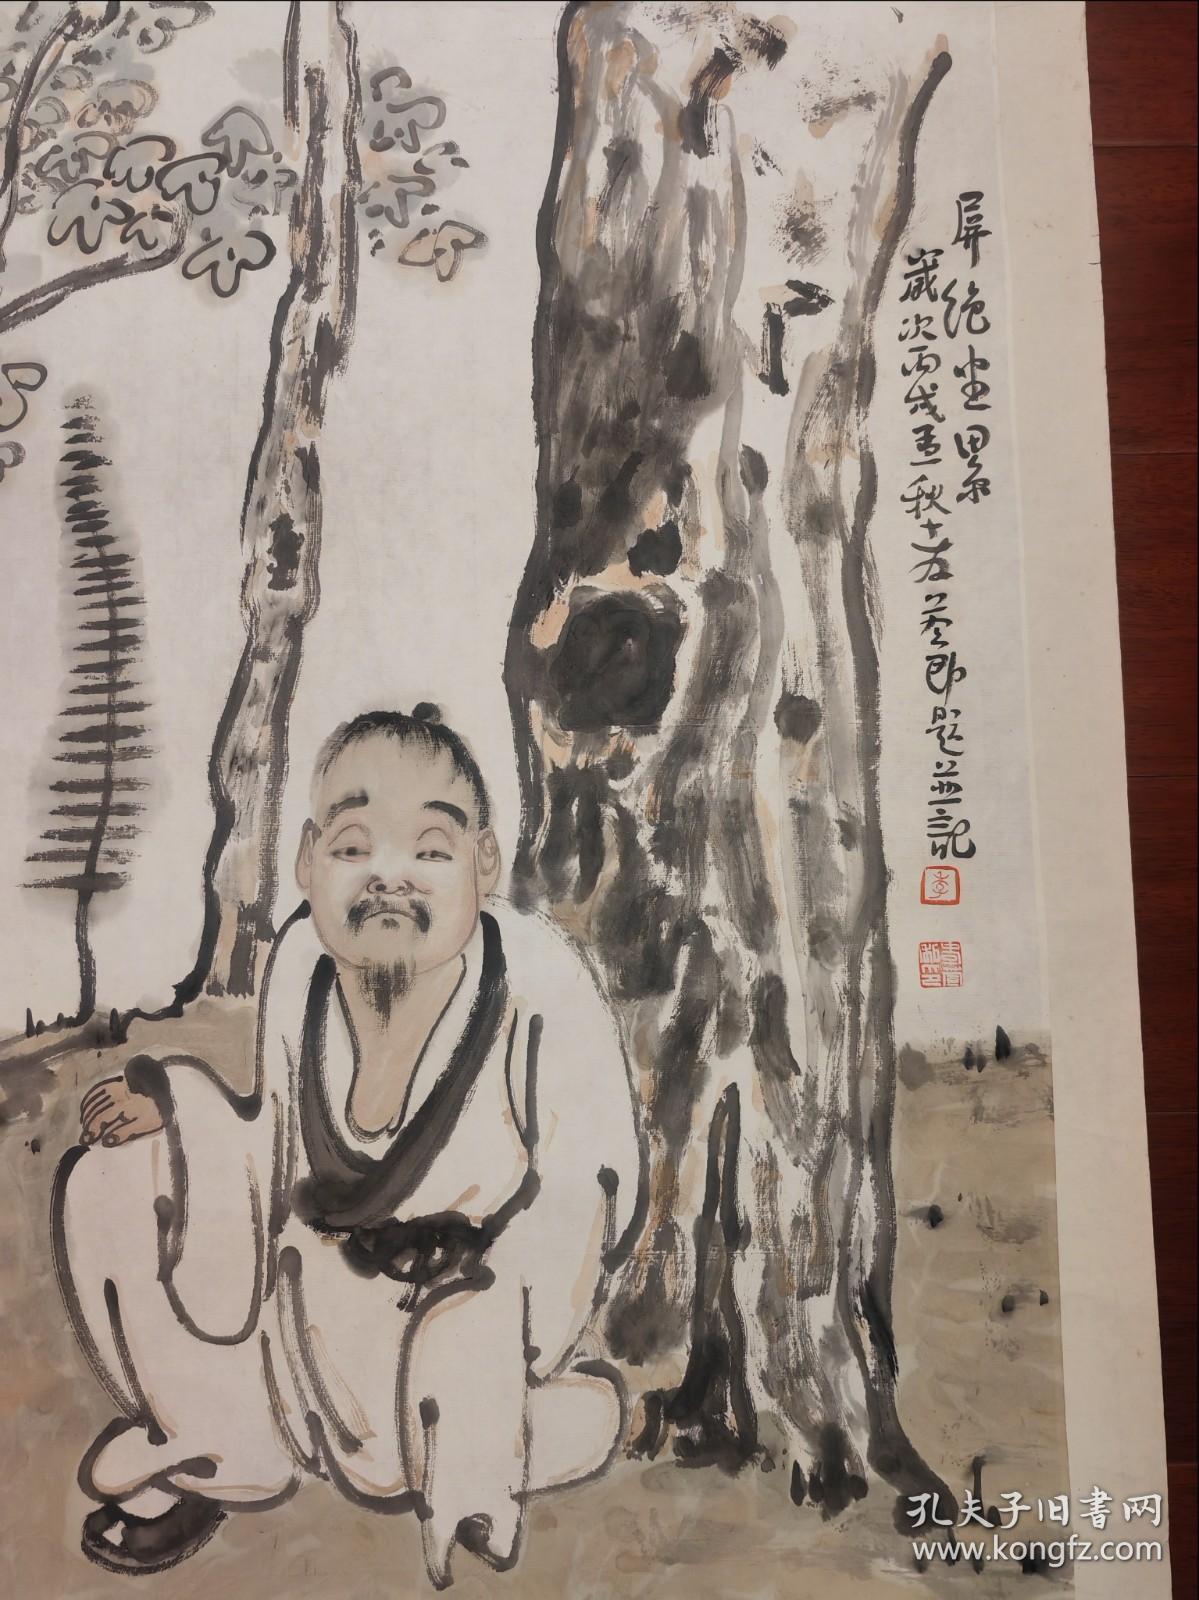 屏绝尘累
岁次丙戌孟秋十友茶郎题并记
李
孔夫子旧书网
www.kongfz.com